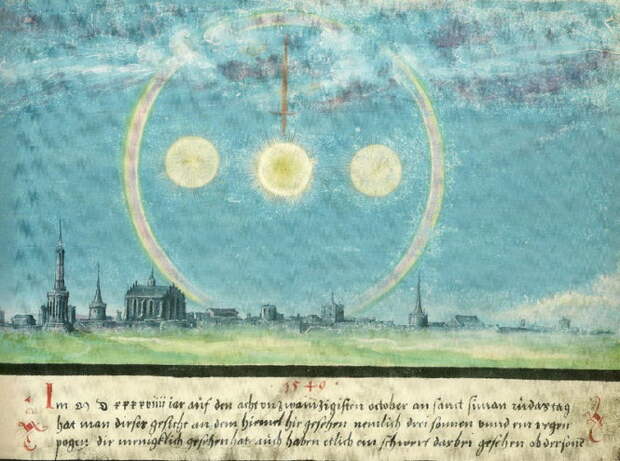 1549
Im M D xxxxviiii iar auf den acht vnzwainzigisten october an sant siman iudas tag
hat man dises gesicht an dem hiemel hir gesehen nemlich drei sonnen vnnd ein regen
pogen die menigklich gesehen hat auch haben etlich ein schwert darbei gesehen ob der sone